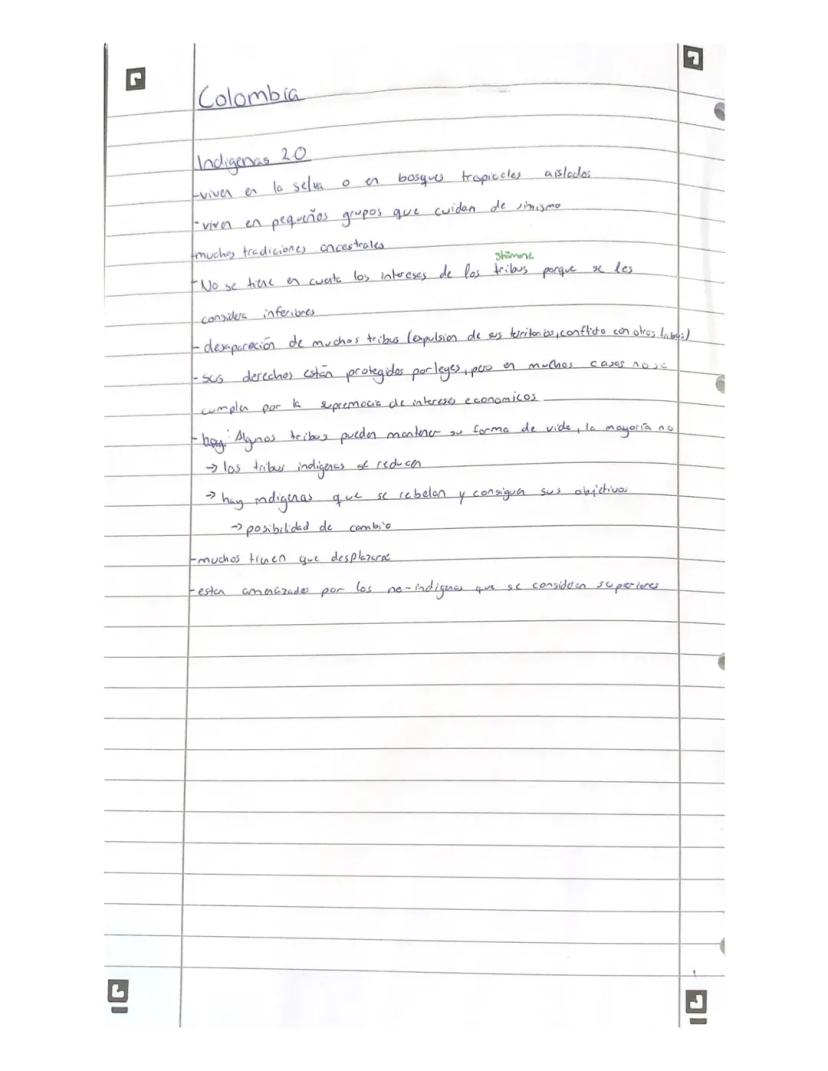 Colombia
Indigenas 2.0
-viven en la selva o en bosques tropicales aislados
-viven en pequeños grupos que cuidan de simismo
-muchas tradiciones ancestrales
Stämme
-No se tiene en cuenta los intereses de las tribus porque se les
considera inferiores
-desaparación de muchas tribus (expulsion de sus territorios, conflicto con otros)
-sus derechos están protegidos por leyes, pero en muchos casos no se
cumplen por la supremacia de intereses economicos
-hoy: Algunas tribus pueden mantener su forma de vida, la mayoría no
→ las tribus indigenas se reducen
→ hay indigenas que se rebelan y consiguen sus objetivos
→ posibilidad de cambio
-muchos tienen que desplazarse
-estan amenazados por los no-indigenas que se consideran superiores